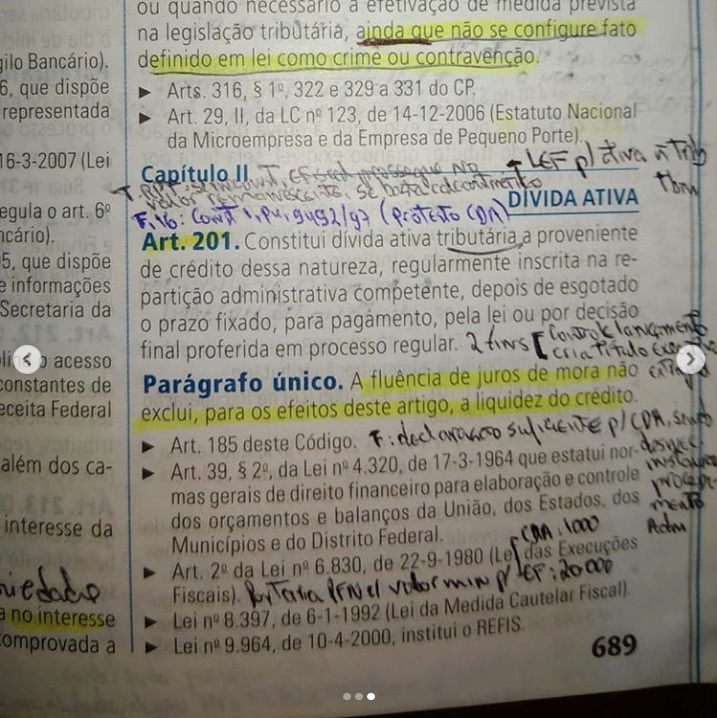 ou quando necessário à efetivação de medida prevista
na legislação tributária, ainda que não se configure fato
definido em lei como crime ou contravenção.
► Arts. 316, § 1º, 322 e 329 a 331 do CP.
► Art. 29, II, da LC nº 123, de 14-12-2006 (Estatuto Nacional
da Microempresa e da Empresa de Pequeno Porte).
Capítulo II
LEF p/ ativa ñ trib
tbm
DÍVIDA ATIVA
F, 16: Const 1, PU, 9492/97 (Protesto CDA)
Art. 201. Constitui dívida ativa tributária a proveniente
de crédito dessa natureza, regularmente inscrita na re-
partição administrativa competente, depois de esgotado
o prazo fixado, para pagamento, pela lei ou por decisão
final proferida em processo regular. 2 fins [ Controle lançamento
cria título
Parágrafo único. A fluência de juros de mora não
exclui, para os efeitos deste artigo, a liquidez do crédito.
► Art. 185 deste Código. F: declaração suficiente p/ CDA, sendo
► Art. 39, § 2º, da Lei nº 4.320, de 17-3-1964 que estatui nor-
mas gerais de direito financeiro para elaboração e controle
dos orçamentos e balanços da União, dos Estados, dos
Municípios e do Distrito Federal.
Adm
CDA: 1000
► Art. 2º da Lei nº 6.830, de 22-9-1980 (Lei das Execuções
Fiscais). Portaria PFN valor min p/ EF: 20000
► Lei nº 8.397, de 6-1-1992 (Lei da Medida Cautelar Fiscal).
► Lei nº 9.964, de 10-4-2000, institui o REFIS.
689
gilo Bancário).
6, que dispõe
representada
16-3-2007 (Lei
egula o art. 6º
ncário).
05, que dispõe
e informações
Secretaria da
o acesso
constantes de
eceita Federal
além dos ca-
interesse da
a no interesse
comprovada a